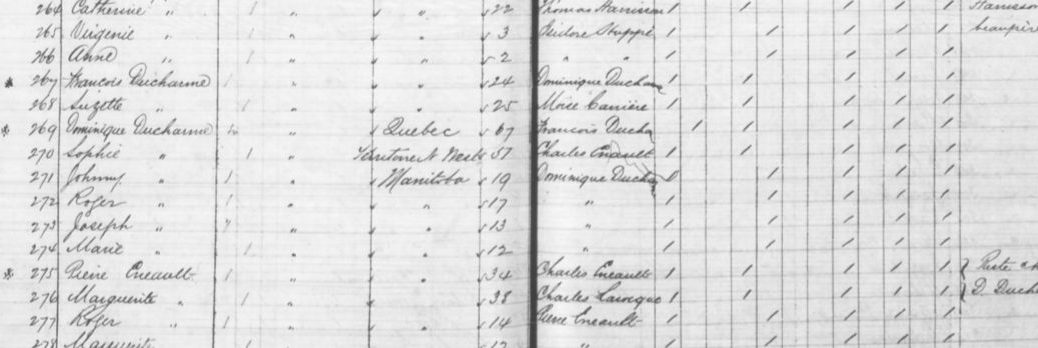 264 Catherine " 1 " " " 22 Thomas Harrison 1 1 1 1 1
265 Virginie " 1 " " " 3 Isidore Huppé 1 1 1 1 1 beaupère
266 Anne " 1 " " " 2 " " 1 1 1 1 1
267 Francois Ducharme 1 " " " 24 Dominique Ducharme 1 1 1 1 1
268 Suzette " 1 " " " 25 Moise Carrière 1 1 1 1 1
269 Dominique Ducharme " " Quebec 67 Francois Ducha 1 1 1 1 1
270 Sophie " 1 " N West 57 Charles Eneault 1 1 1 1 1
271 Johnny " 1 " " Manitoba 19 Dominique Ducha 1 1 1 1
272 Roger " 1 " " " 17 " 1 1 1 1
273 Joseph " 1 " " " 13 " 1 1 1 1
274 Marie " 1 " " " 12 " 1 1 1 1
275 Pierre Eneault 1 " " " 34 Charles Eneault 1 1 1 1 1
276 Marguerite " 1 " " " 38 Charles Larocque 1 1 1 1 1 D. Duch
277 Roger " 1 " " " 14 Pierre Eneault 1 1 1 1 1
278 Marguerite 1 " " " 12 "